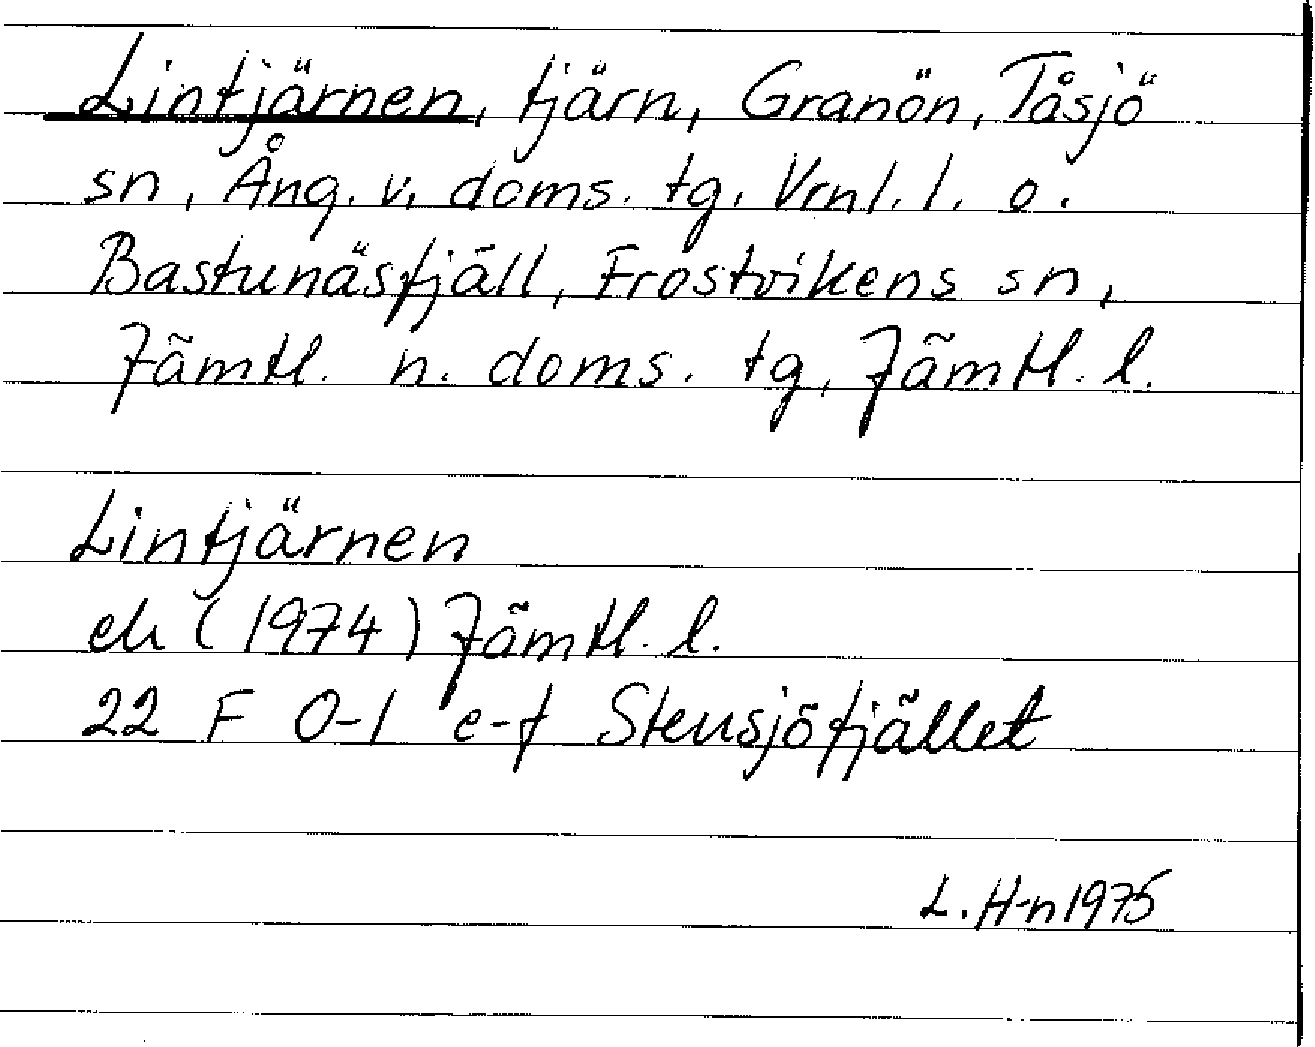 Lintjärnen, tjärn, Granön, Tåsjö
sn, Ång. v. doms. tg. Vrnl. l. o.
Bastunäsfjäll, Frostvikens sn,
Jämtl. n. doms. tg, Jämtl. l.
Lintjärnen
ek (1974) Jämtl. l.
22 F 0-1 e-f Stensjöfjället
L. H-n 1975